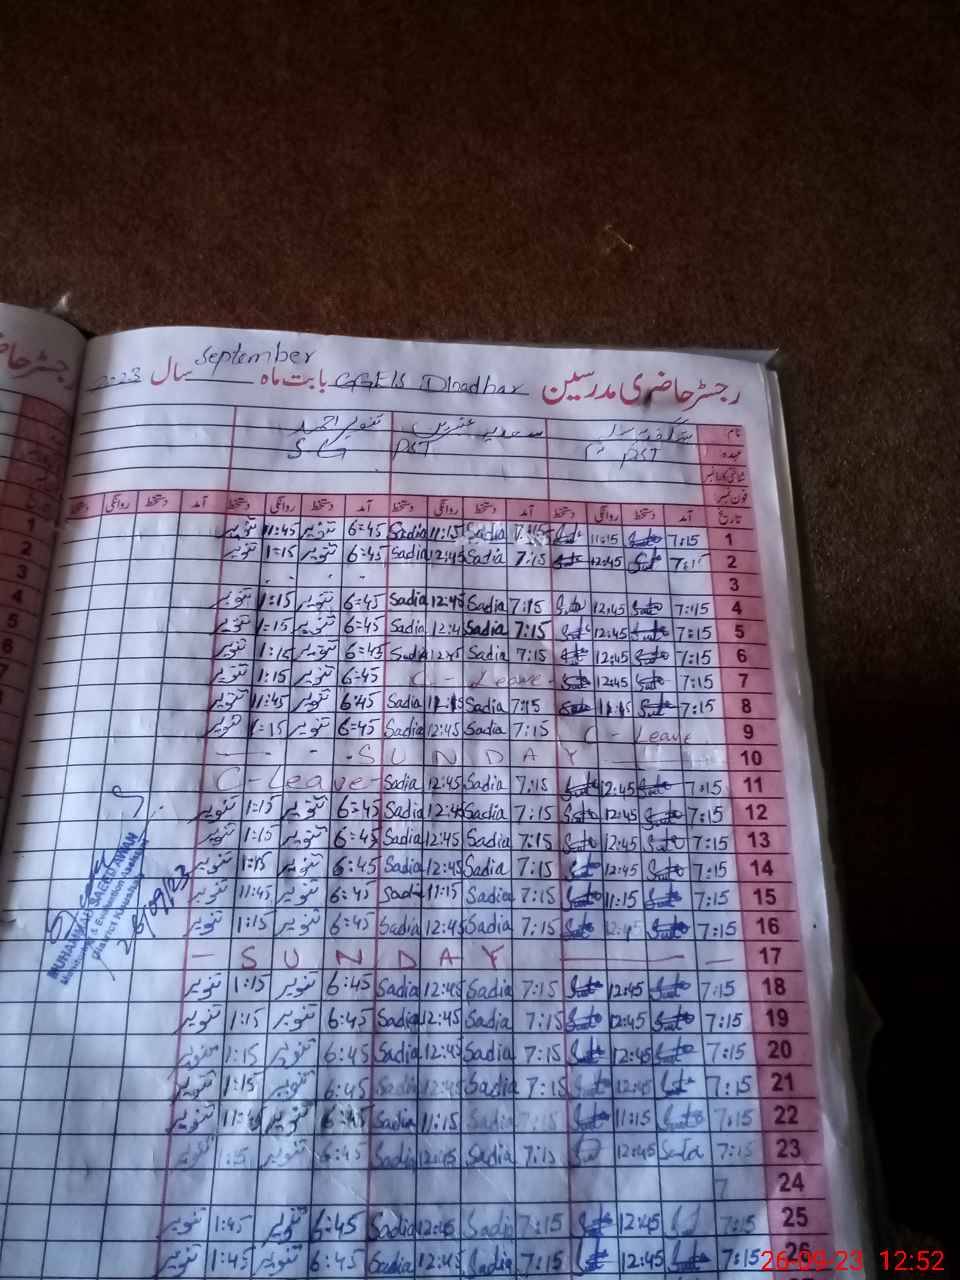 رجسٹر حاضری مدرسین GGElS Dhadhar بابت ماہ September سال 2023
نام سعدیہ عنبرین تنویر احمد
عہدہ PST PST SG
شناختی کارڈ نمبر
فون نمبر
تاریخ آمد دستخط روانگی دستخط آمد دستخط روانگی دستخط آمد دستخط روانگی دستخط آمد دستخط روانگی دستخط
1 7:15 11:15 7:15 Sadia 11:15 Sadia 6=45 تنویر 11:45 تنویر
2 7:15 12:45 7:15 Sadia 12:45 Sadia 6=45 تنویر 1:15 تنویر
3
4 7:15 12:45 7:15 Sadia 12:45 Sadia 6=45 تنویر 1:15 تنویر
5 7:15 12:45 7:15 Sadia 12:45 Sadia 6=45 تنویر 1:15 تنویر
6 7:15 12:45 7:15 Sadia 12:45 Sadia 6=45 تنویر 1:15 تنویر
7 7:15 12:45 C - Leave - 6=45 تنویر 1:15 تنویر
8 7:15 11:15 7:15 Sadia 11:15 Sadia 6:45 تنویر 11:45 تنویر
9 C - Leave 7:15 Sadia 12:45 Sadia 6=45 تنویر 1:15 تنویر
10 SUNDAY
11 7:15 12:45 7:15 Sadia 12:45 Sadia C-Leave-
12 7:15 12:45 7:15 Sadia 12:45 Sadia 6=45 تنویر 1:15 تنویر
13 7:15 12:45 7:15 Sadia 12:45 Sadia 6=45 تنویر 1:15 تنویر
14 7:15 12:45 7:15 Sadia 12:45 Sadia 6:45 تنویر 1:15 تنویر
15 7:15 11:15 7:15 Sadia 11:15 Sadia 6:45 تنویر 11:45 تنویر
16 7:15 12:45 7:15 Sadia 12:45 Sadia 6:45 تنویر 1:15 تنویر
17 - SUNDAY -
18 7:15 12:45 7:15 Sadia 12:45 Sadia 6:45 تنویر 1:15 تنویر
19 7:15 12:45 7:15 Sadia 12:45 Sadia 6:45 تنویر 1:15 تنویر
20 7:15 12:45 7:15 Sadia 12:45 Sadia 6:45 تنویر 1:15 تنویر
21 7:15 12:45 7:15 Sadia 12:45 Sadia 6:45 تنویر 1:15 تنویر
22 7:15 11:15 7:15 Sadia 11:15 Sadia 6:45 تنویر 11:45 تنویر
23 7:15 12:45 7:15 Sadia 12:45 Sadia 6:45 تنویر 1:15 تنویر
24 7
25 7:15 12:45 7:15 Sadia 12:45 Sadia 6:45 تنویر 1:45 تنویر
26 7:15 12:45 7:15 Sadia 12:45 Sadia 6:45 تنویر 1:45 تنویر
MUHAMMAD SAEED AWAN
Monitoring & Evaluation Assistant
District
26/09/23
رجسٹر حاضری
1
2
3
4
5
6
7
26-09-23 12:52